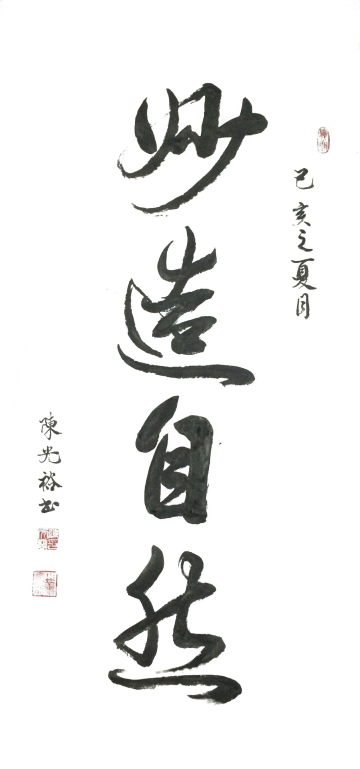 己亥之夏月
妙造自然
陳光裕书